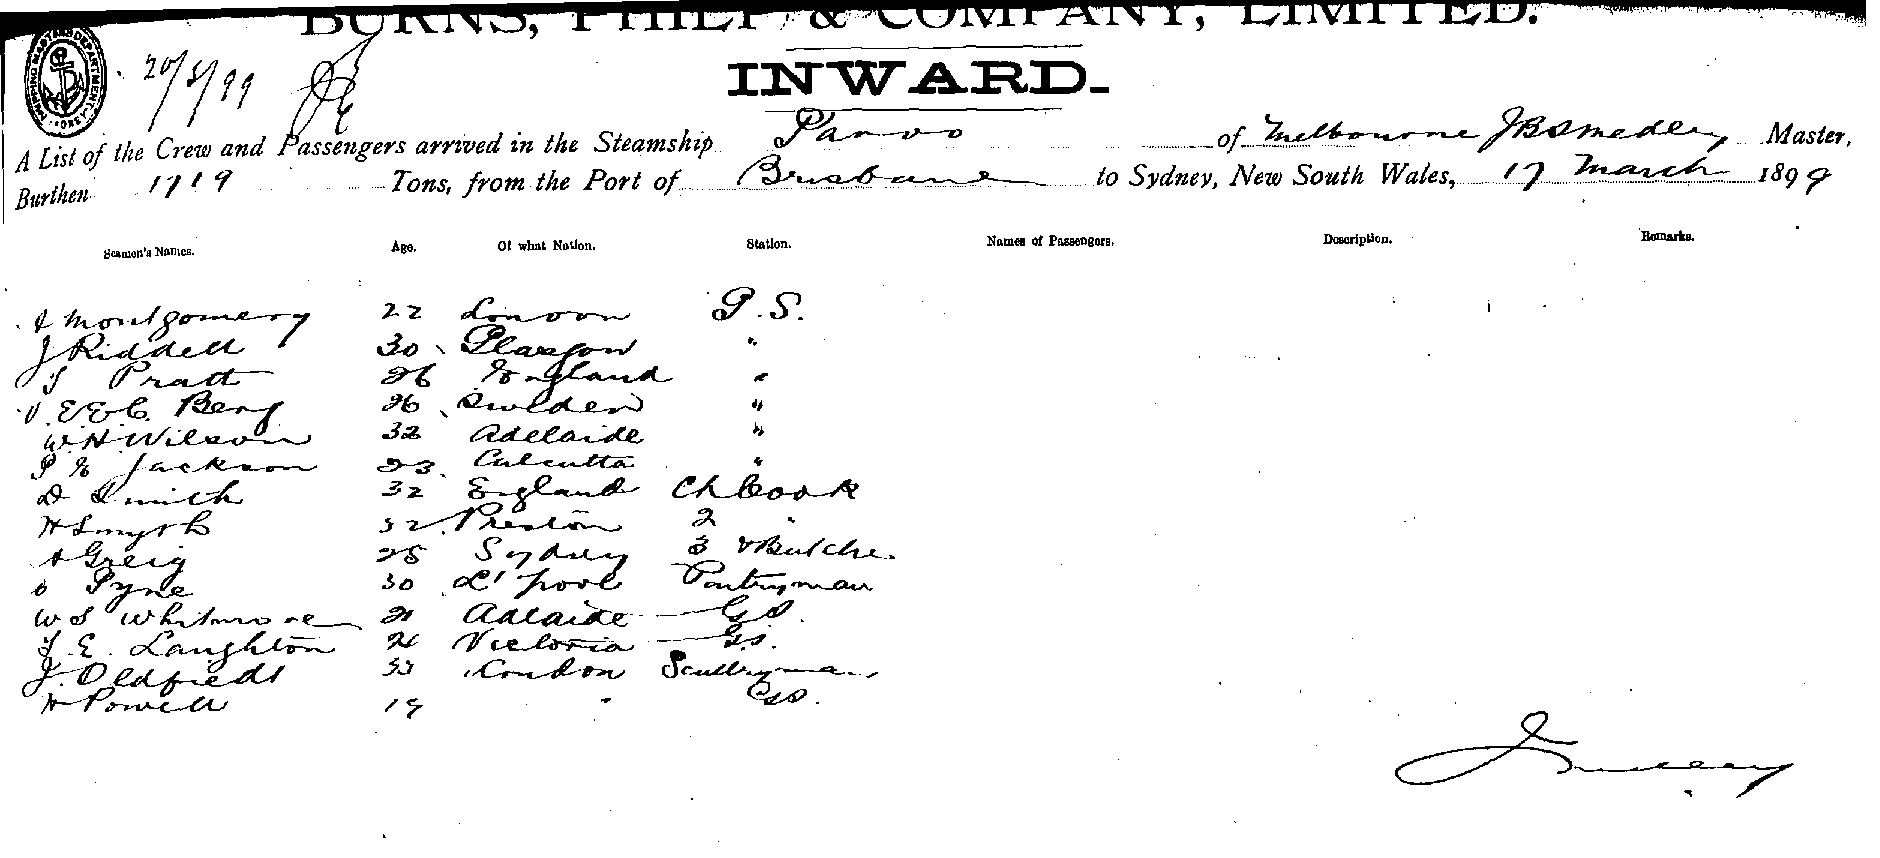 BURNS, PHILP & COMPANY, LIMITED.
INWARD.
20/3/99
A List of the Crew and Passengers arrived in the Steamship Paroo of Melbourne J B Smedley Master,
Burthen 1719 Tons, from the Port of Brisbane to Sydney, New South Wales, 17 March 1899
Seamen's Names. Age. Of what Nation. Station. Names of Passengers. Description. Remarks.
Montgomery 22 London P.S.
J Riddell 30 Glasgow "
Pratt 26 England "
Berg 26 Sweden "
W. H. Wilson 32 Adelaide "
Jackson 23 Calcutta "
D Smith 32 England Ch Cook
H Smyth 32 Preston 2 "
A Greig 25 Sydney 3 & Butcher
Pyne 30 L'pool Pantryman
W S Whitmore 21 Adelaide G S.
E. Laughton Victoria G.S.
J. Oldfield 33 London Scullyman
H Powell 19 " G S.